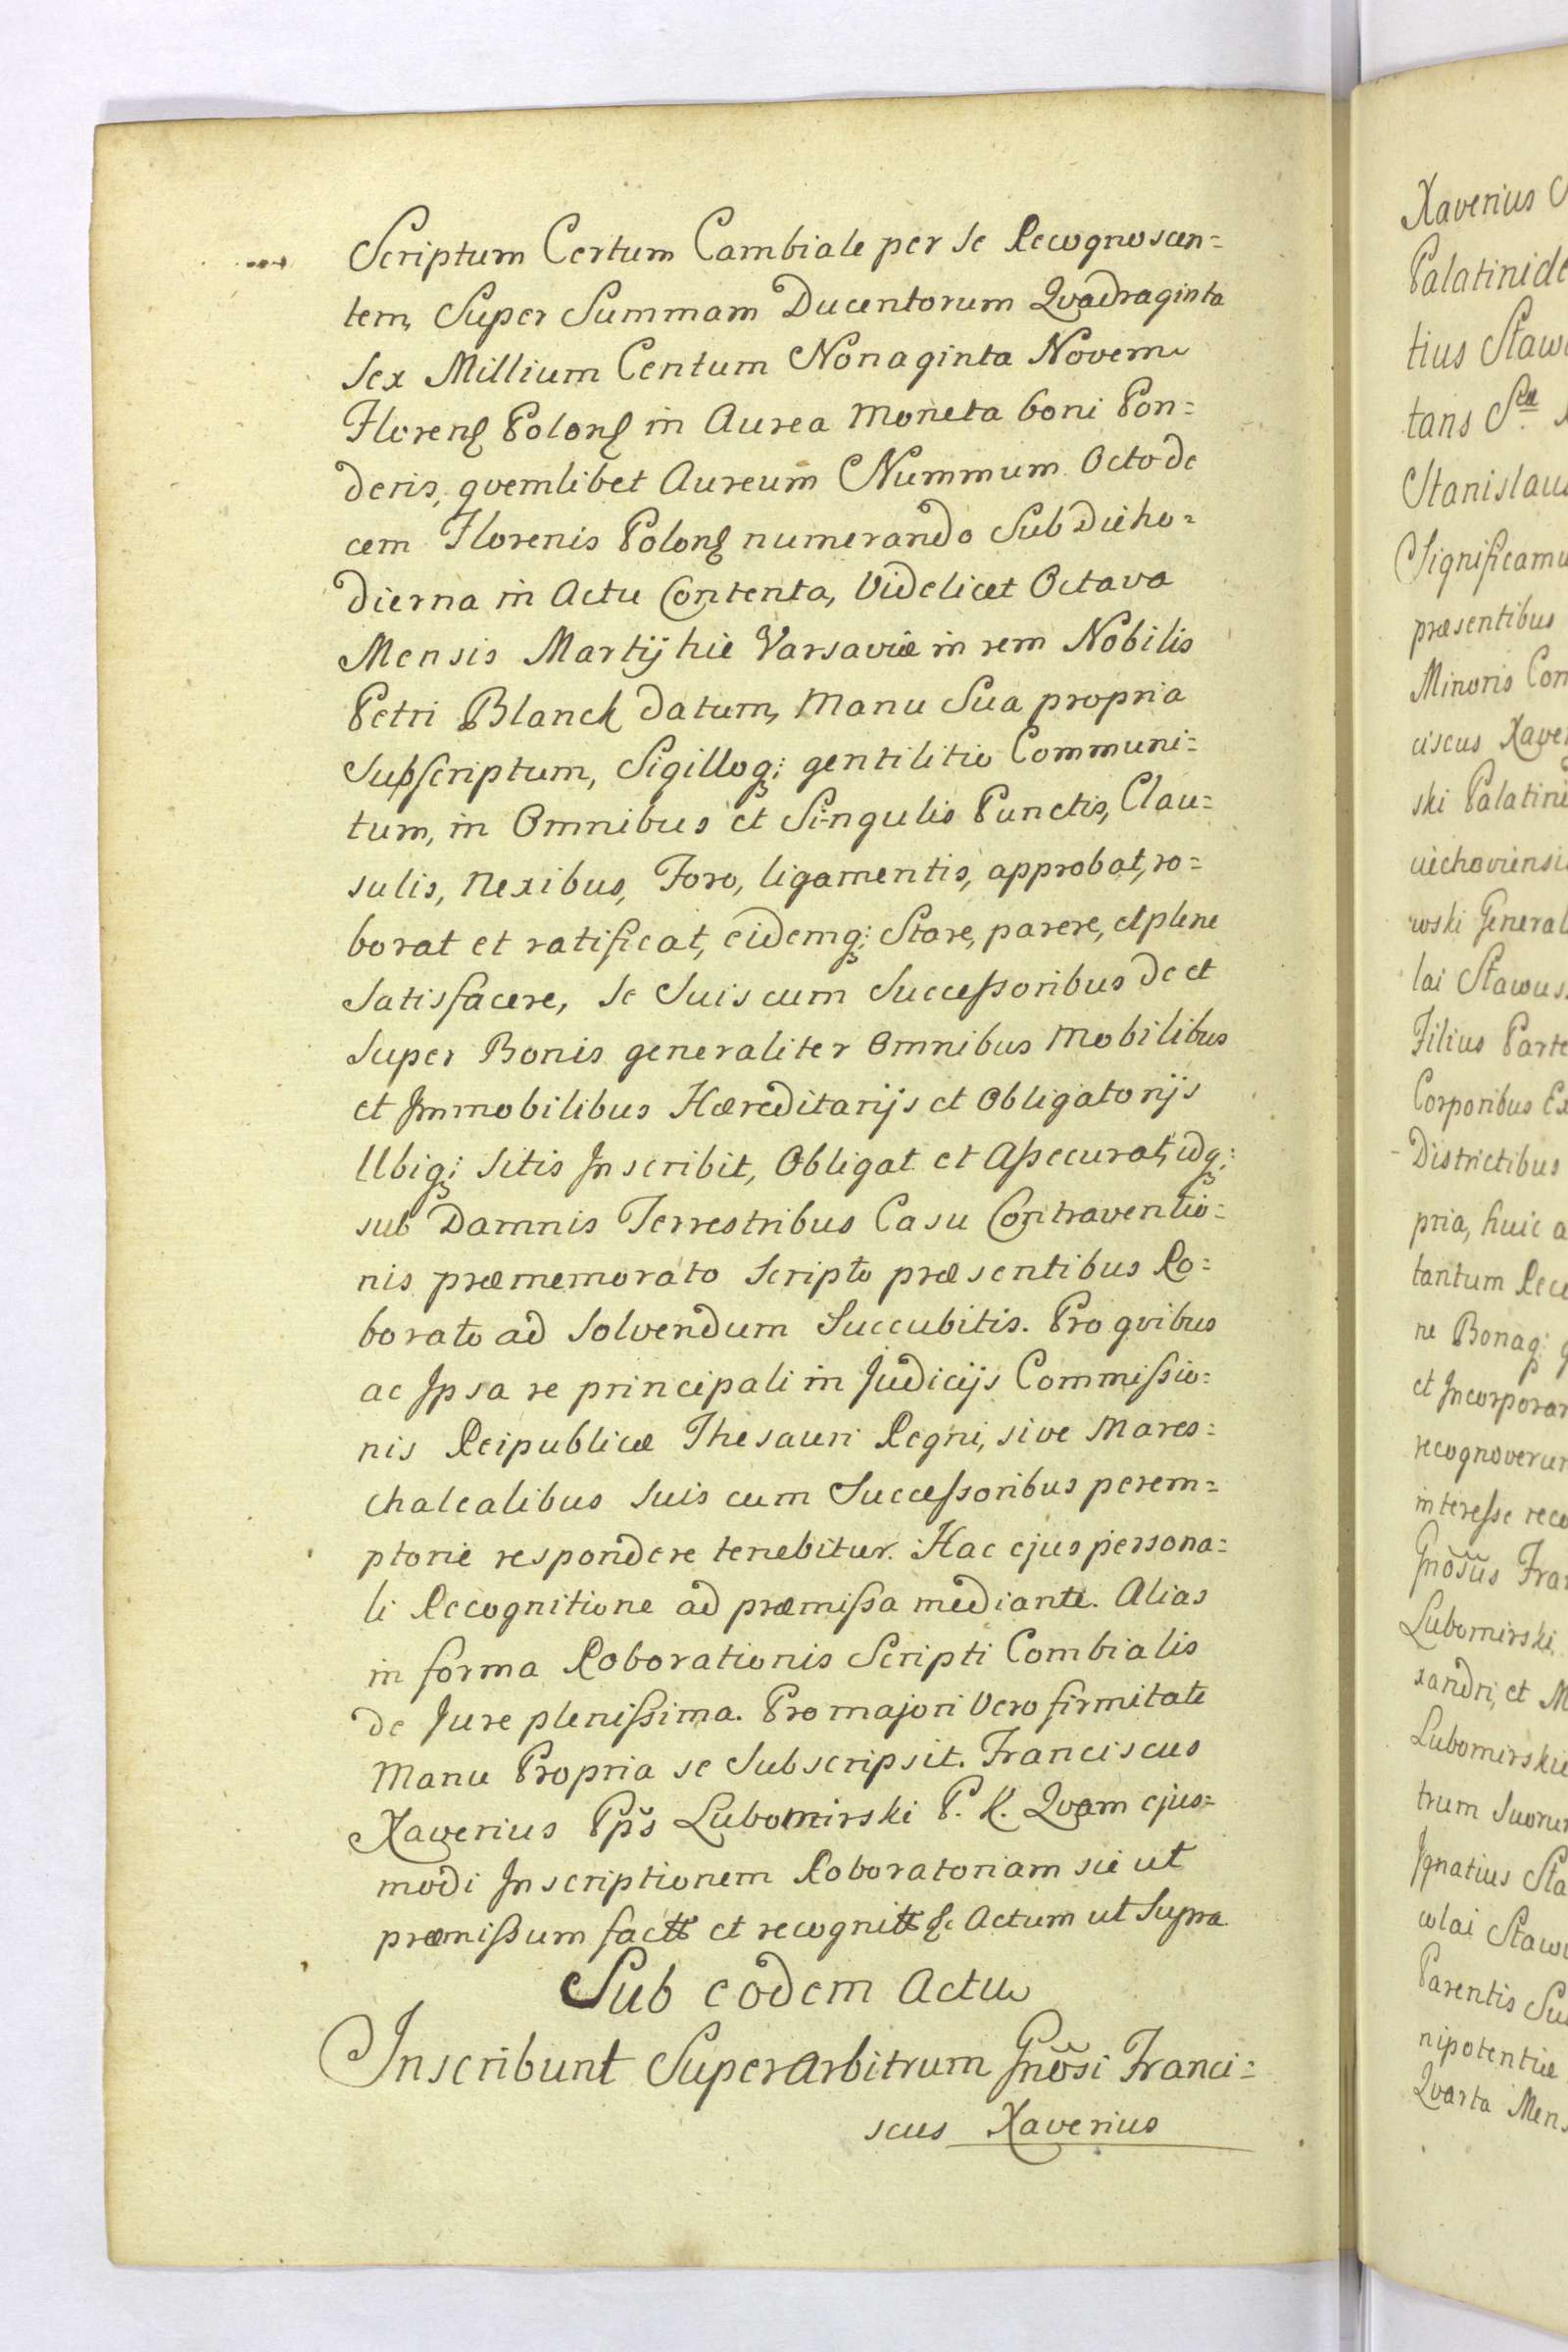 Scriptum Certum Cambiale per se Recognoscen=
tem, Super Summam Ducentorum Qvadraginta
sex Millium Centum Nonaginta Novem
Floren Polon in Aurea Moneta boni Pon=
deris, qvemlibet Aureum Nummum Octode
cem Florenis Polon numerando Sub Die ho=
dierna in Actu Contenta, Videlicet Octava
Mensis Martij hic Varsaviæ in rem Nobilis
Petri Blanck datum, Manu Sua propria
Subscriptum, Sigilloq; gentilitio Communi=
tum, in Omnibus et Singulis Punctis, Clau=
sulis, Nexibus, Foro, ligamentis, approbat, ro=
borat et ratificat, eidemq; Stare, parere, et plene
Satisfacere, se Suis cum Successoribus de et
Super Bonis generaliter Omnibus Mobilibus
et Immobilibus Hæreditarijs et Obligatorijs
Ubiq; sitis Inscribit, Obligat et Assecurat, idq;
sub Damnis Terrestribus Casu Contraventio=
nis præmemorato Scripto præsentibus Ro=
borato ad Solvendum Succubitis. Pro qvibus
ac Ipsa re principali in Judicijs Commissio=
nis Reipublicæ Thesauri Regni, sive Mares=
chalcalibus suis cum Successoribus perem=
ptorie respondere tenebitur. Hac ejus persona=
li Recognitione ad præmissa mediante. Alias
in forma Roborationis Scripti Combialis
de Jure plenissima. Pro majori Vero firmitate
Manu Propria se Subscripsit. Franciscus
Xaverius Pps Lubomirski P. K. Qvam ejus=
modi Inscriptionem Roboratoriam sic ut
præmissum factt et recognitt Actum ut Supra
Sub eodem Actu
Inscribunt Superarbitrum Gnosi Franci=
scus Xaverius
Xaverius
Palatinide
tius
tans
Stanislaus
Significamu
præsentibus
Minoris
ciscus
ski
wski
lai
Filius
Corporibus
Districtibus
pria, huic
tantum
ne Bonaq;
et
interesse
Gnosus
Lubomirski.
xandri, et
Ignatius
Parentis
Qvarta